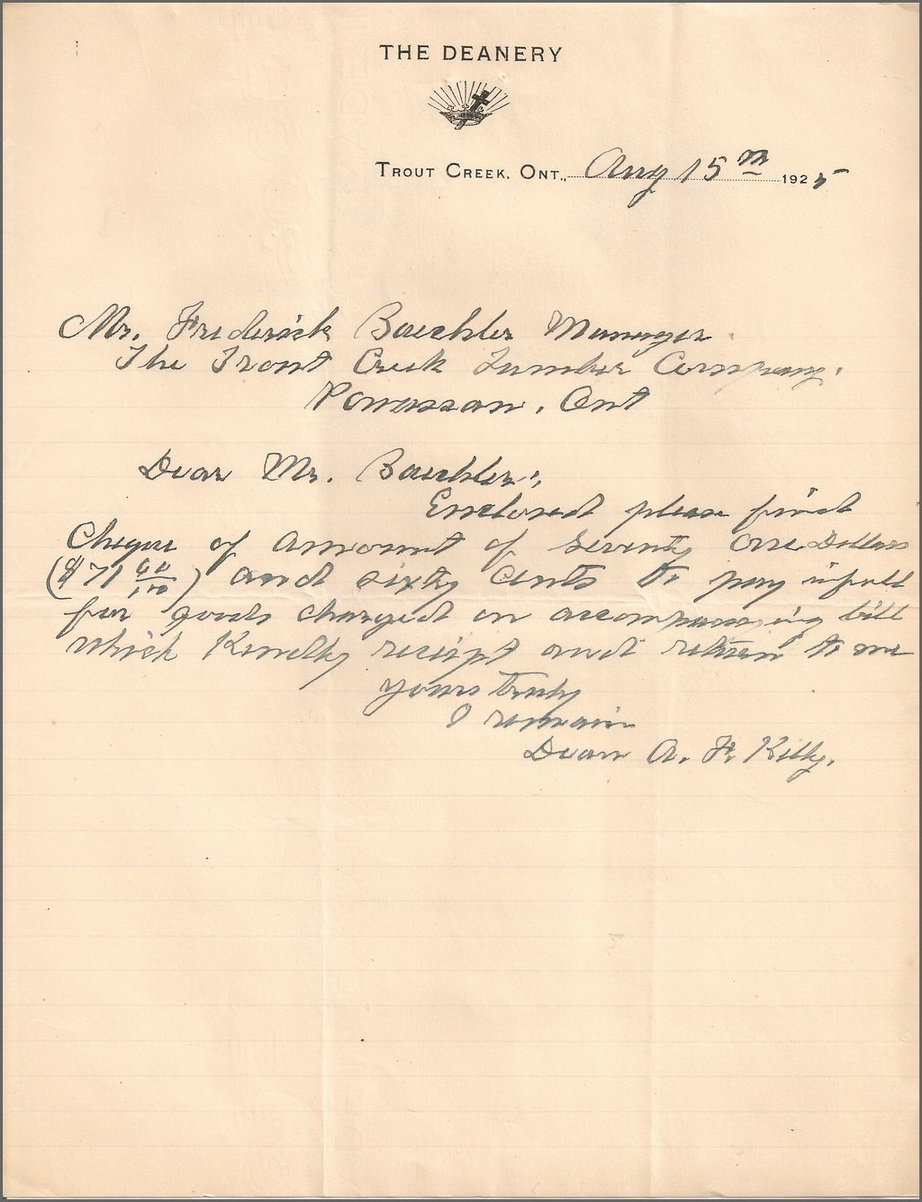 THE DEANERY
TROUT CREEK, ONT., Aug 15th 1925
Mr. Frederick Baechler Manager
The Trout Creek Lumber Company.
Powassan, Ont
Dear Mr. Baechler:,
Enclosed please find
Cheque of amount of seventy one Dollars
($71 60/100) and sixty cents to pay in full
for goods charged on accompanying bill
which Kindly receipt and return to me
yours truly
I remain
Dean A. F. Kelly.